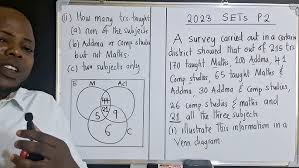 (ii) How many trs taught
(a) non of the subjects
(b) Addma or Comp studies
but not Maths.
(c) two subjects only
M
44
5 9
6
2023 SETs P2
A survey carried out in a certain
district showed that out of 215 trs
170 taught Maths, 100 Addma, 41
Comp studies, 65 taught Maths &
Addma, 30 Addma & Comp studies,
26 comp studies & maths and
21 all the three subjects
(i) illustrate this information in a
Venn diagram